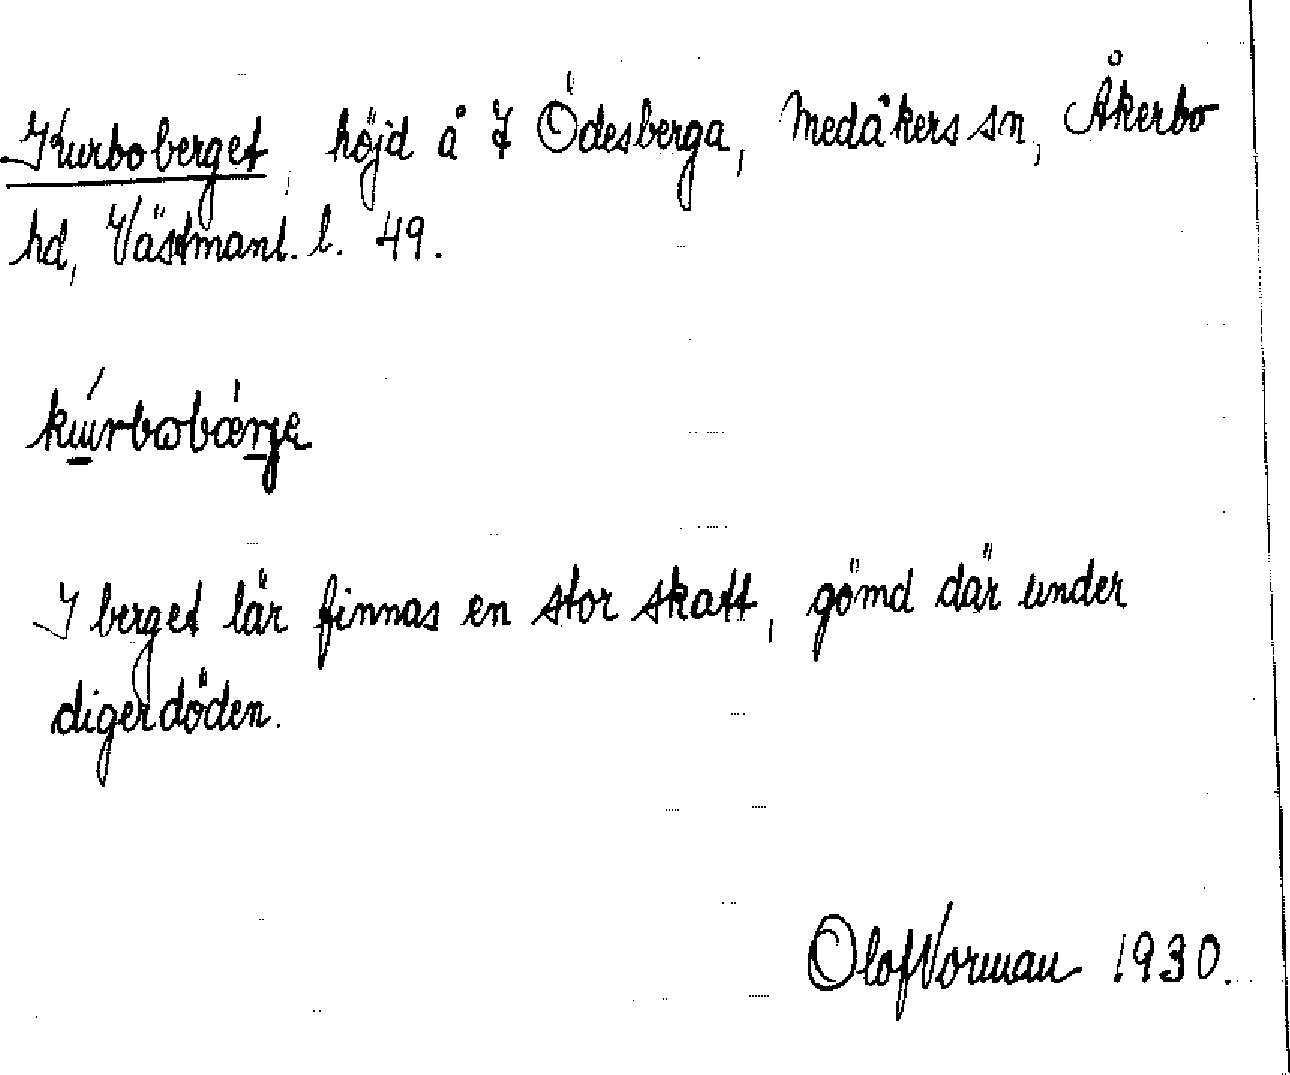 Kurboberget, höjd å Ödesberga, Medåkers sn, Åkerbo
hd, Västmanl. l. 49.
I berget lär finnas en stor skatt, gömd där under
digerdöden.
Olof Norman 1930.